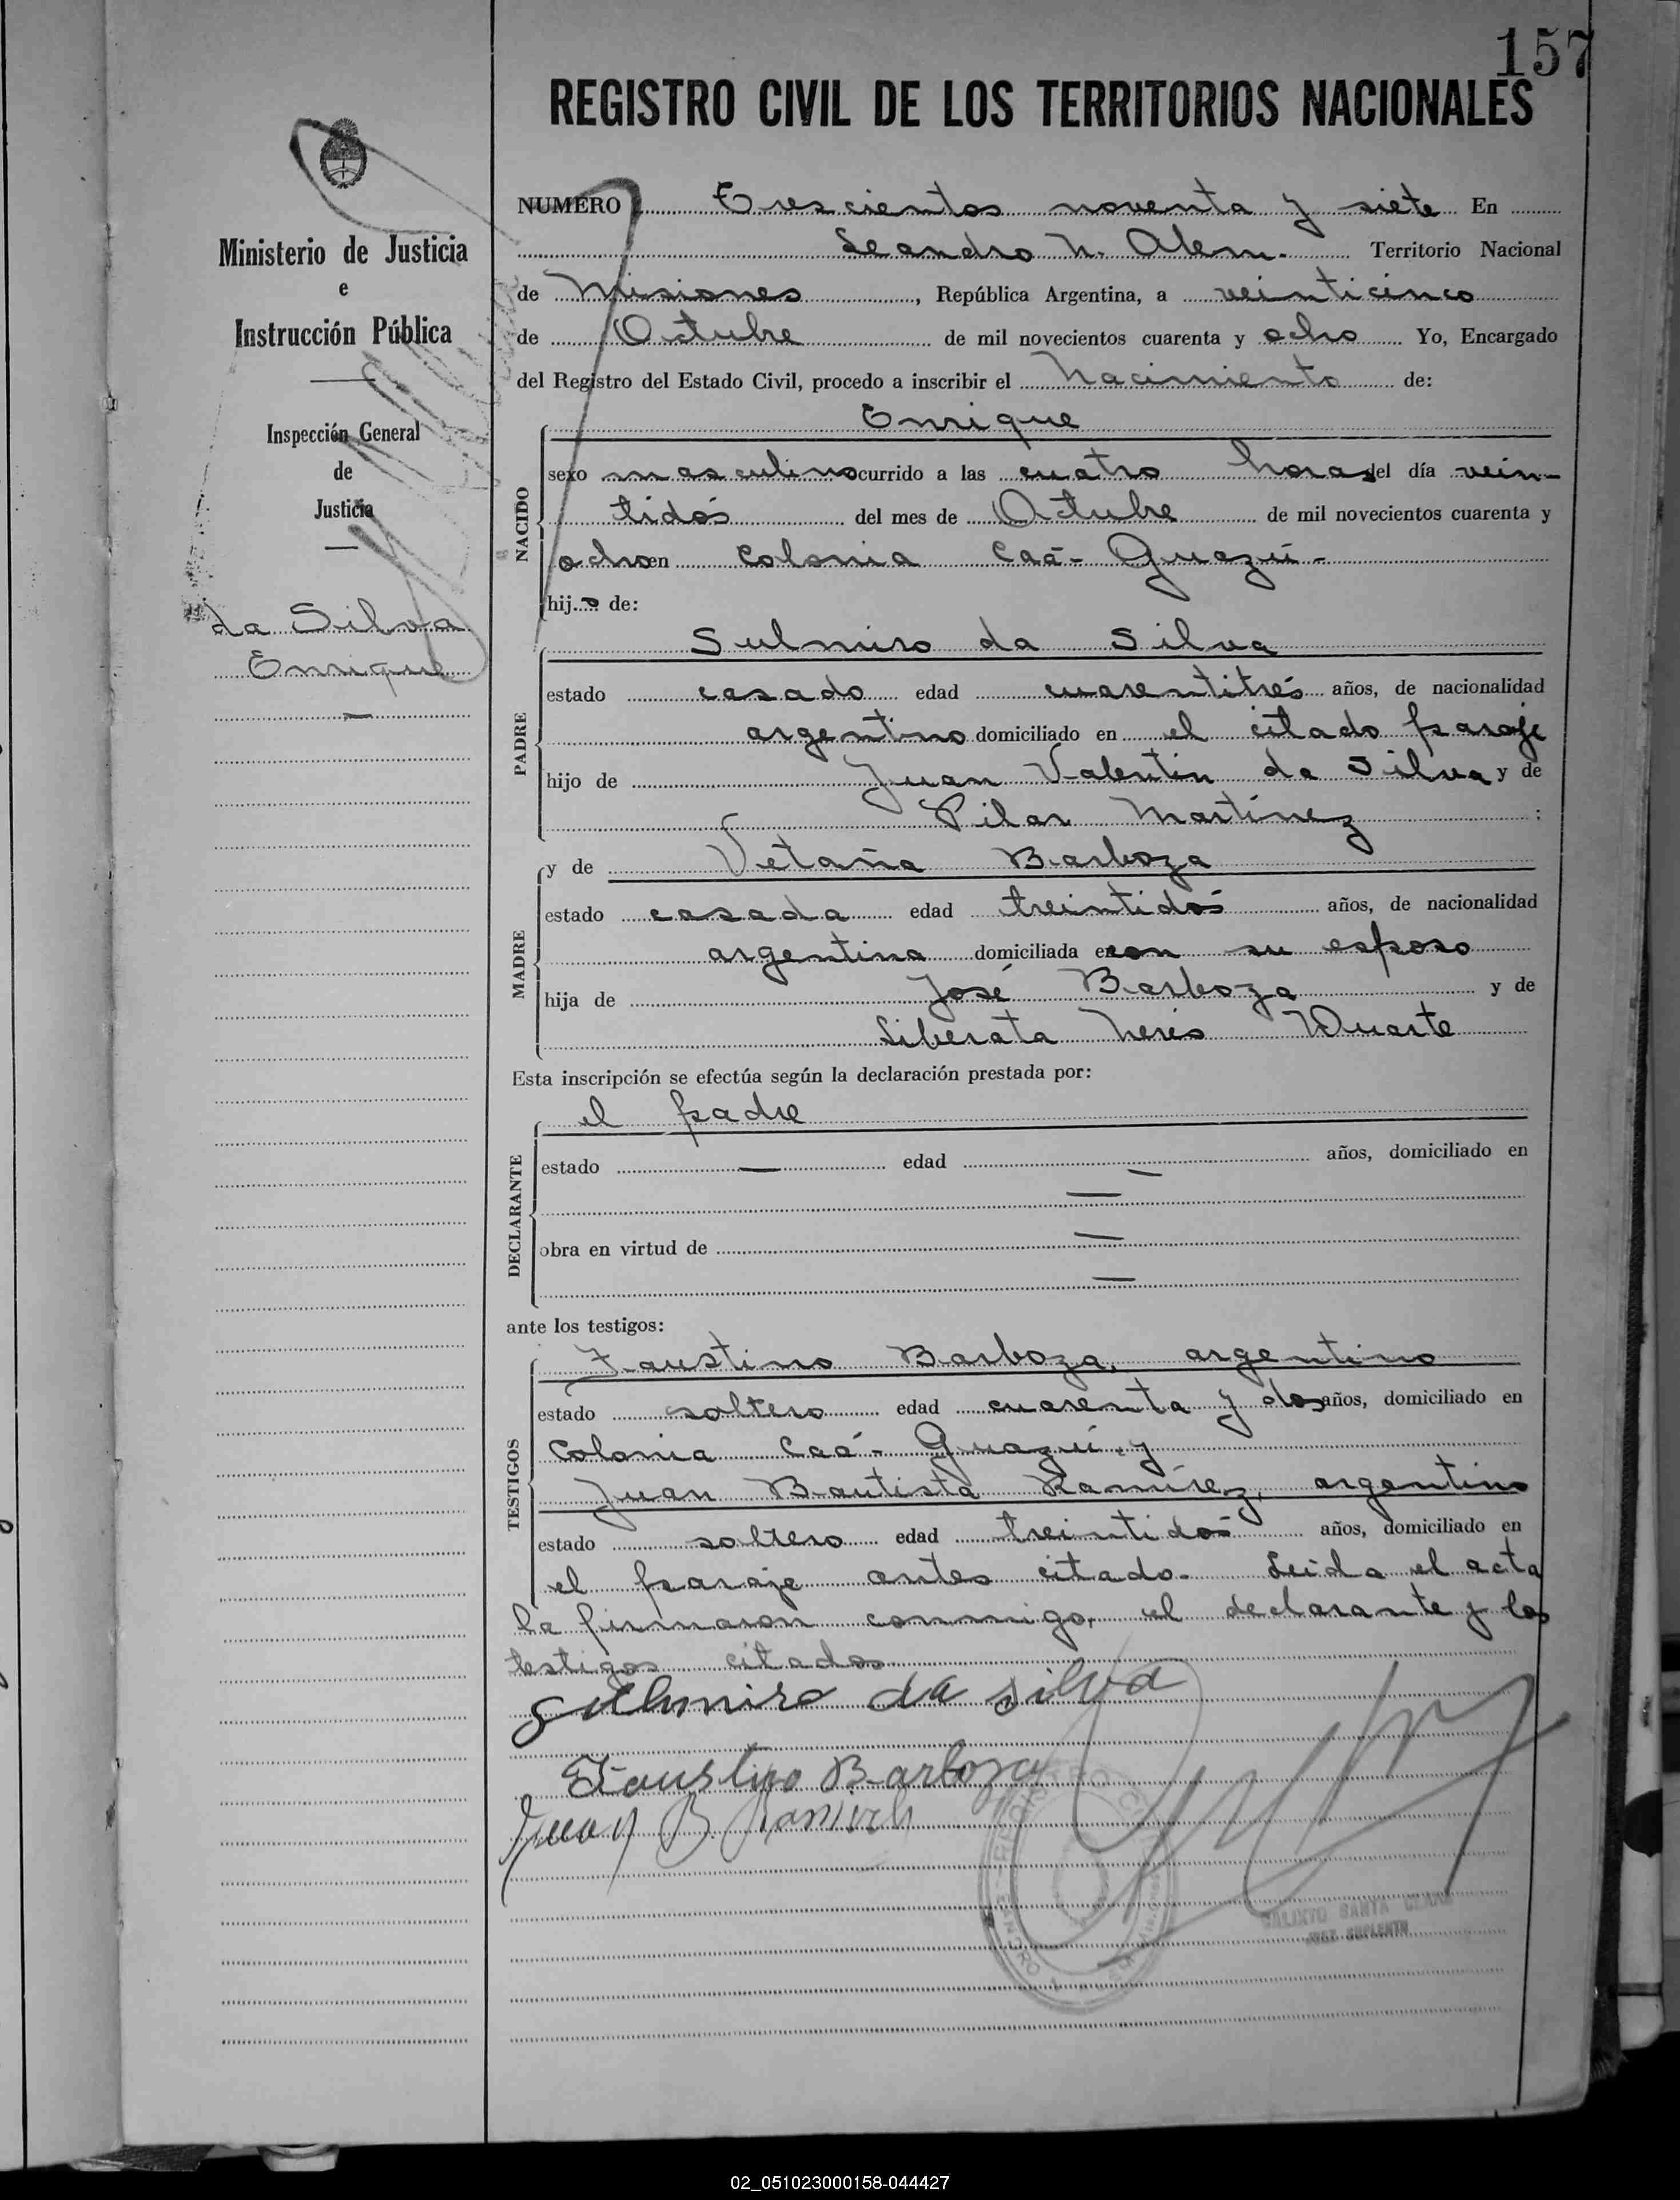 157
REGISTRO CIVIL DE LOS TERRITORIOS NACIONALES
Ministerio de Justicia
e
Instrucción Pública
Inspección General
de
Justicia
da Silva
Enrique
NUMERO Trescientos noventa y siete En
Leandro N. Alem. Territorio Nacional
de Misiones, República Argentina, a veinticinco
de Octubre de mil novecientos cuarenta y ocho Yo, Encargado
del Registro del Estado Civil, procedo a inscribir el Nacimiento de:
NACIDO
Enrique
sexo masculino ocurrido a las cuatro horas del día vein-
tidós del mes de Octubre de mil novecientos cuarenta y
ocho en Colonia Caá-Guazú-
hijo de:
PADRE
Sulmiro da Silva
estado casado edad cuarentitrés años, de nacionalidad
argentino domiciliado en el citado paraje
hijo de Juan Valentín da Silva y de
Pilar Martínez :
MADRE
y de Vetaña Barboza
estado casada edad treintidós años, de nacionalidad
argentina domiciliada en con su esposo
hija de José Barboza y de
Liberata Nerés Duarte
Esta inscripción se efectúa según la declaración prestada por:
DECLARANTE
el padre
estado — edad — años, domiciliado en
—
obra en virtud de —
—
ante los testigos:
TESTIGOS
Faustino Barboza, argentino
estado soltero edad cuarenta y dos años, domiciliado en
Colonia Caá-Guazú y
Juan Bautista Ramírez, argentino
estado soltero edad treintidós años, domiciliado en
el paraje antes citado. Leída el acta
la firmaron conmigo, el declarante y los
testigos citados
Sulmiro da silva
Faustino Barboza
Juan B Ramirez
CALIXTO SANTA CLARA
JUEZ SUPLENTE
02_051023000158-044427